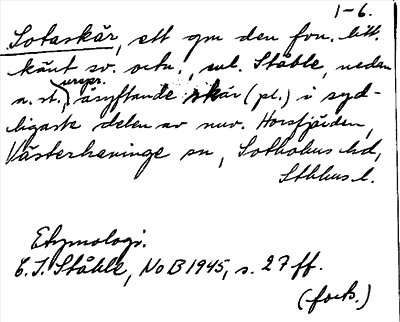 1-6.
Sotaskär, ett gm den fvn. litt.
känt sv. ortn., enl. Ståhle, nedan
a. st., urspr. åsyftande skär (pl.) i syd-
ligaste delen av nuv. Horsfjärden,
Västerhaninge sn, Sotholms hd,
Sthlms l.
Etymologi.
C. I. Ståhle, NoB 1945, s. 27 ff.
(forts.)